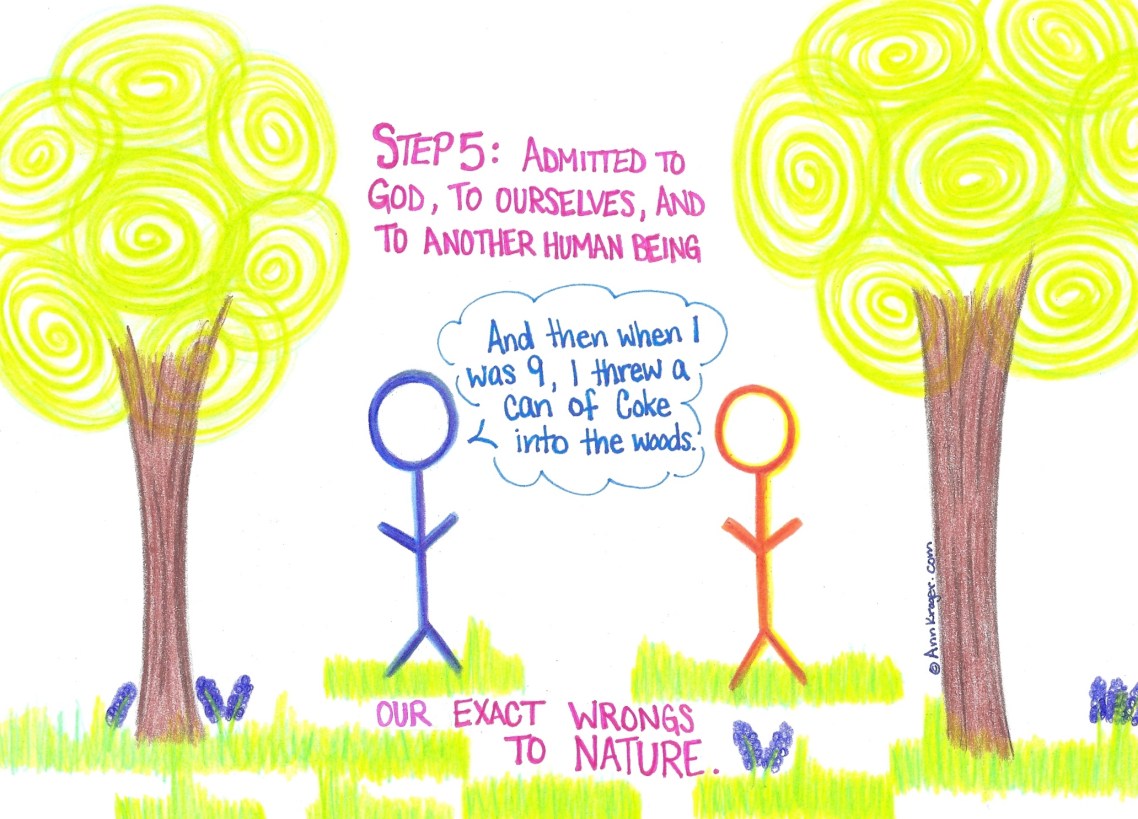 STEP 5: ADMITTED TO
GOD, TO OURSELVES, AND
TO ANOTHER HUMAN BEING
And then when I
was 9, I threw a
can of Coke
into the woods.
OUR EXACT WRONGS
TO NATURE.
© AnnKroger.com